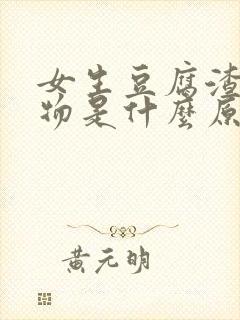 女生豆腐渣
物是什麼原
黃元明